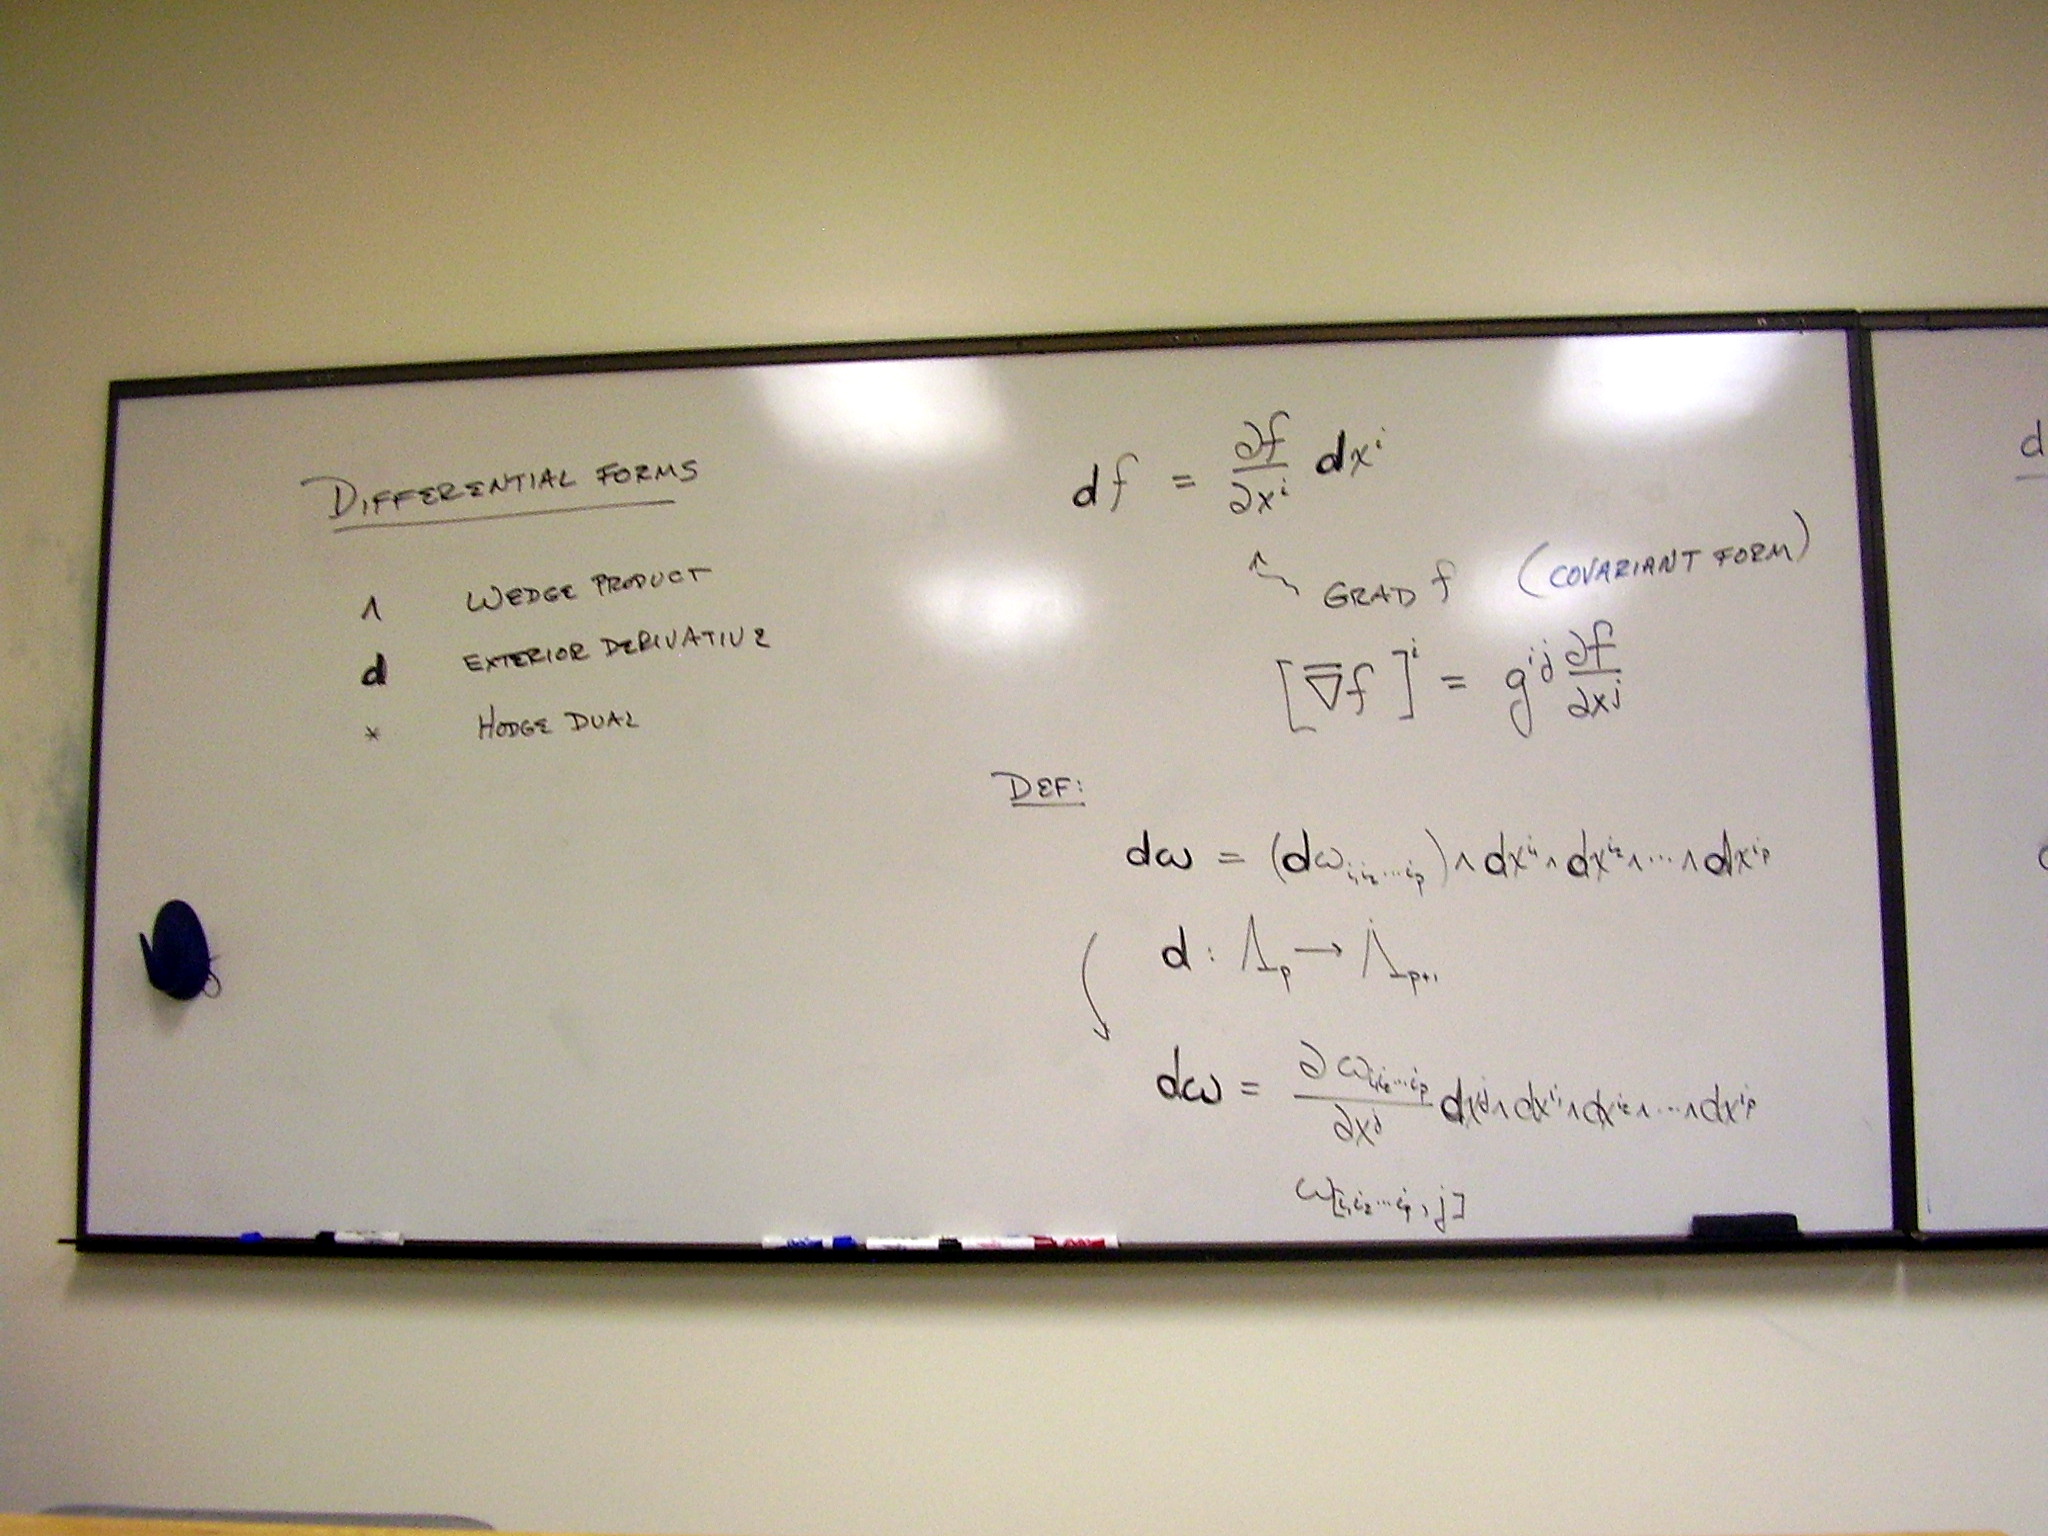 DIFFERENTIAL FORMS
∧ WEDGE PRODUCT
d EXTERIOR DERIVATIVE
* HODGE DUAL
df = ∂f/∂xⁱ dxⁱ
GRAD f (COVARIANT FORM)
[∇̄f]ⁱ = gⁱʲ ∂f/∂xʲ
DEF:
dω = (dω_{i₁i₂…i_p}) ∧ dx^{i₁} ∧ dx^{i₂} ∧ … ∧ dx^{i_p}
d : Λ_p → Λ_{p+1}
dω = ∂ω_{i₁i₂…i_p}/∂xʲ dxʲ ∧ dx^{i₁} ∧ dx^{i₂} ∧ … ∧ dx^{i_p}
ω_{[i₁i₂…i_p,j]}
d